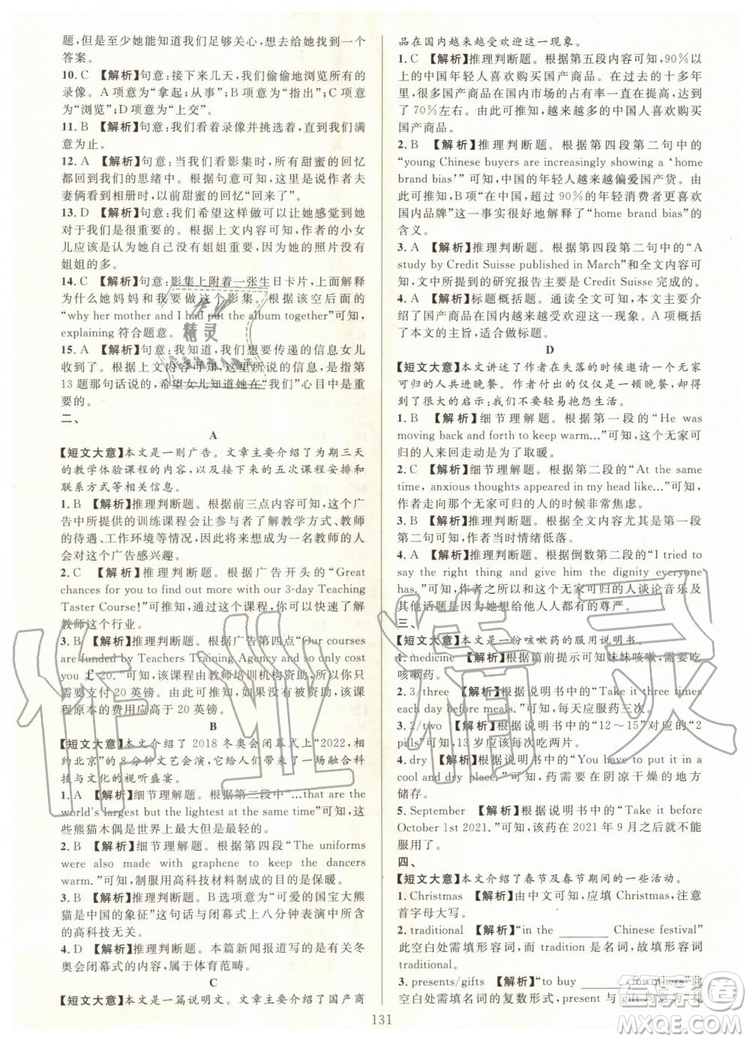 题,但是至少她能知道我们足够关心,会去试着寻找一个
答案。
10. C 【解析】句意:接下来几天,我们偷偷地浏览所有
的录像。A项意为“拿起;从事”;B项意为“指出”;C项意
为“浏览”;D项意为“上交”。
11. B 【解析】句意:我们看着录像并挑选着,直到我们
满意为止。
12. A 【解析】句意:当我们看影集时,所有甜蜜的回忆
都回到了我们的思绪中。根据上下文可知,这里是说作者夫
妻俩看影集时,以前甜蜜的回忆“回来了”。
13. D 【解析】句意:我们希望这样做可以让她感到她对
于我们有多么重要。根据上下文内容可知,作者的小女
儿应该是认为她自己没有姐姐重要,因为她的照片没有
姐姐的多。
14. C 【解析】句意:影集上附着一张生日卡片,上面解释
为什么她妈妈和我要做这个影集。根据该空后面的
“why her mother and I had put the album together”可知,
explaining 符合题意。
15. A 【解析】句意:我知道,我们想要传递的信息女儿
已经清楚明确地收到了。根据上下文内容可知,这里是指
13题的那句话说的,希望女儿知道她在“我们”心目中是重
要的。
二、
A
【短文大意】本文是一则广告。文章主要介绍了为期三天
的教学体验课程的内容,以及接下来的五次课程安排和
联系方式等相关信息。
1. B 【解析】推理判断题。根据前三点内容可知,这个广
告中所提供的训练课程会让参与者了解教学方式、教师
的待遇、工作环境等情况,因此一名想成为一名教师的人
会对这个广告感兴趣。
2. C 【解析】推理判断题。根据广告开头的“Great
chances for you to find out more with our 3-day Teaching
Taster Course!”可知,通过这个课程,你可以了解
教师这个行业。
3. B 【解析】推理判断题。根据广告第四点“Our courses
are funded by Teachers Training Agency and so only cost
you £20.”可知,该课程由教师培训机构资助,因此,该课
程原本的费用应高于20英镑。
B
【短文大意】本文介绍了2018冬奥会闭幕式上“2022,相
约北京”的8分钟文艺会演,这给人们带来了一场融合科
技与文化的视听盛宴。
1. A 【解析】细节理解题。根据第二段中“...that are the
world's largest but the lightest at the same time”可知,这
些熊猫木偶是世界上最大的,同时也是最轻的。
2. C 【解析】细节理解题。根据第三段中“The uniforms
were also made with graphene to keep the dancers
warm.”可知,制服用高科技材料制成的目的是保暖。
3. B 【解析】推理判断题。B选项意为“可爱的国宝大熊
猫是中国的象征”这句话与闭幕式上八分钟表演中所用
的高科技无关。
4. D 【解析】推理判断题。本篇新闻报道写的是有关冬
奥会闭幕式的内容,因此属于体育范畴。
C
【短文大意】本文是一篇说明文。文章主要介绍了国产商
品在国内越来越受欢迎这一现象。
1. C 【解析】推理判断题。根据第五段内容可知,90%以
上的中国年轻人喜欢购买国产家电。在过去的十多年
里,很多国产商品的占有率上升了,国产食品的占有率达
到了70%左右。由此可知,越来越多的中国人喜欢购买
国产商品。
2. B 【解析】推理判断题。根据第四段第二句中的
“young Chinese buyers are increasingly showing a ‘home
brand bias’”可知,中国的年轻人越来越偏爱国产货。由
此可推知,B项“在中国,90%的年轻消费者更喜欢购买
国内品牌”事实很好地解释了“home brand bias”。
3. A 【解析】推理判断题。根据第四段第二句中的“A
study by Credit Suisse published in March”和全文内容可
知,文中所提到的研究报告是由 Credit Suisse 完成的。
4. A 【解析】标题概括题。通读全文可知,本文主要介
绍了国产商品在国内越来越受欢迎这一现象。A项概括
了本文的主旨,适合做标题。
D
【短文大意】本文讲述了作者在失落的时候邀请一个无家
可归的人共进晚餐,作者付出的仅仅是一顿晚餐,可却收
获了很多,也开始感恩生活。
1. B 【解析】细节理解题。根据第一段的“He was
moving back and forth to keep warm...”可知,这个无家可
归的人来回走动是为了取暖。
2. C 【解析】细节理解题。根据第二段的“At the same
time, anxious thoughts appeared in my head like...”可知,
作者走向那个无家可归的人的时候非常焦虑。
3. B 【解析】推理判断题。根据全文内容尤其是第一段
第二句可知,作者当时情绪低落。
4. A 【解析】细节理解题。根据倒数第二段的“I tried to
say the right thing and give him the dignity everyone
has.”可知,作者之所以和这个无家可归的人谈论音乐及
其他话题是想给他每个人都有的尊严。
三、
【短文大意】本文是一份咳嗽药的服用说明书。
1. medicine 【解析】根据前面提示可知妹妹咳嗽了,需要吃
咳嗽药。
2. 3/three 【解析】根据说明书中的“Take it three times
a day after meals.”可知,每天应服药三次。
3. 2/two 【解析】根据说明书中的“12~15”以及“2
pills”可知,应服用两片。
4. dry 【解析】根据说明书中的“You have to put it in a
cool and dry place.”可知,药需要在阴凉干燥的地方
储存。
5. September 【解析】根据说明书中的“Take it before
October 1st 2021.”可知,该药在2021年9月之后就不能
服用了。
四、
【短文大意】本文介绍了春节及春节期间的一些活动。
1. Christmas 【解析】由中文可知,应填 Christmas,注意
首字母大写。
2. traditional 【解析】“in the ______ Chinese festival”
此空白处需填形容词,而 tradition 是名词,故填形容词
traditional.
3. presents/gifts 【解析】“to buy ______ for others”此
空白处需填名词的复数形式,present 与 gift 意为“礼
131